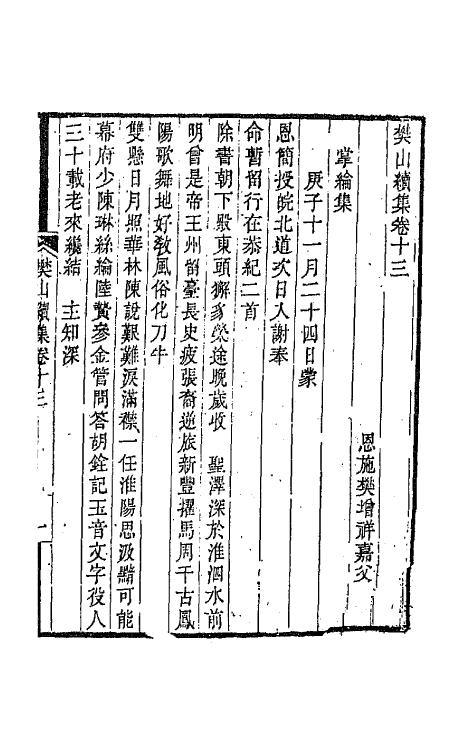 樊山續集卷十三
恩施樊增祥嘉父
掌綸集
庚子十一月二十四日蒙
恩簡授皖北道次日入謝奉
命暫留行在恭紀二首
除書朝下殿東頭獬豸榮途晚歲收　聖澤深於淮泗水前
明曾是帝王州留臺長史疲張裔逆旅新豐擢馬周千古鳳
陽歌舞地好教風俗化刀牛
雙懸日月照華林陳說艱難淚滿襟一任淮陽思汲黯可能
幕府少陳琳絲綸陸贄參金管問答胡銓記玉音文字役人
三十載老來纔結　主知深
樊山續集卷十三
一